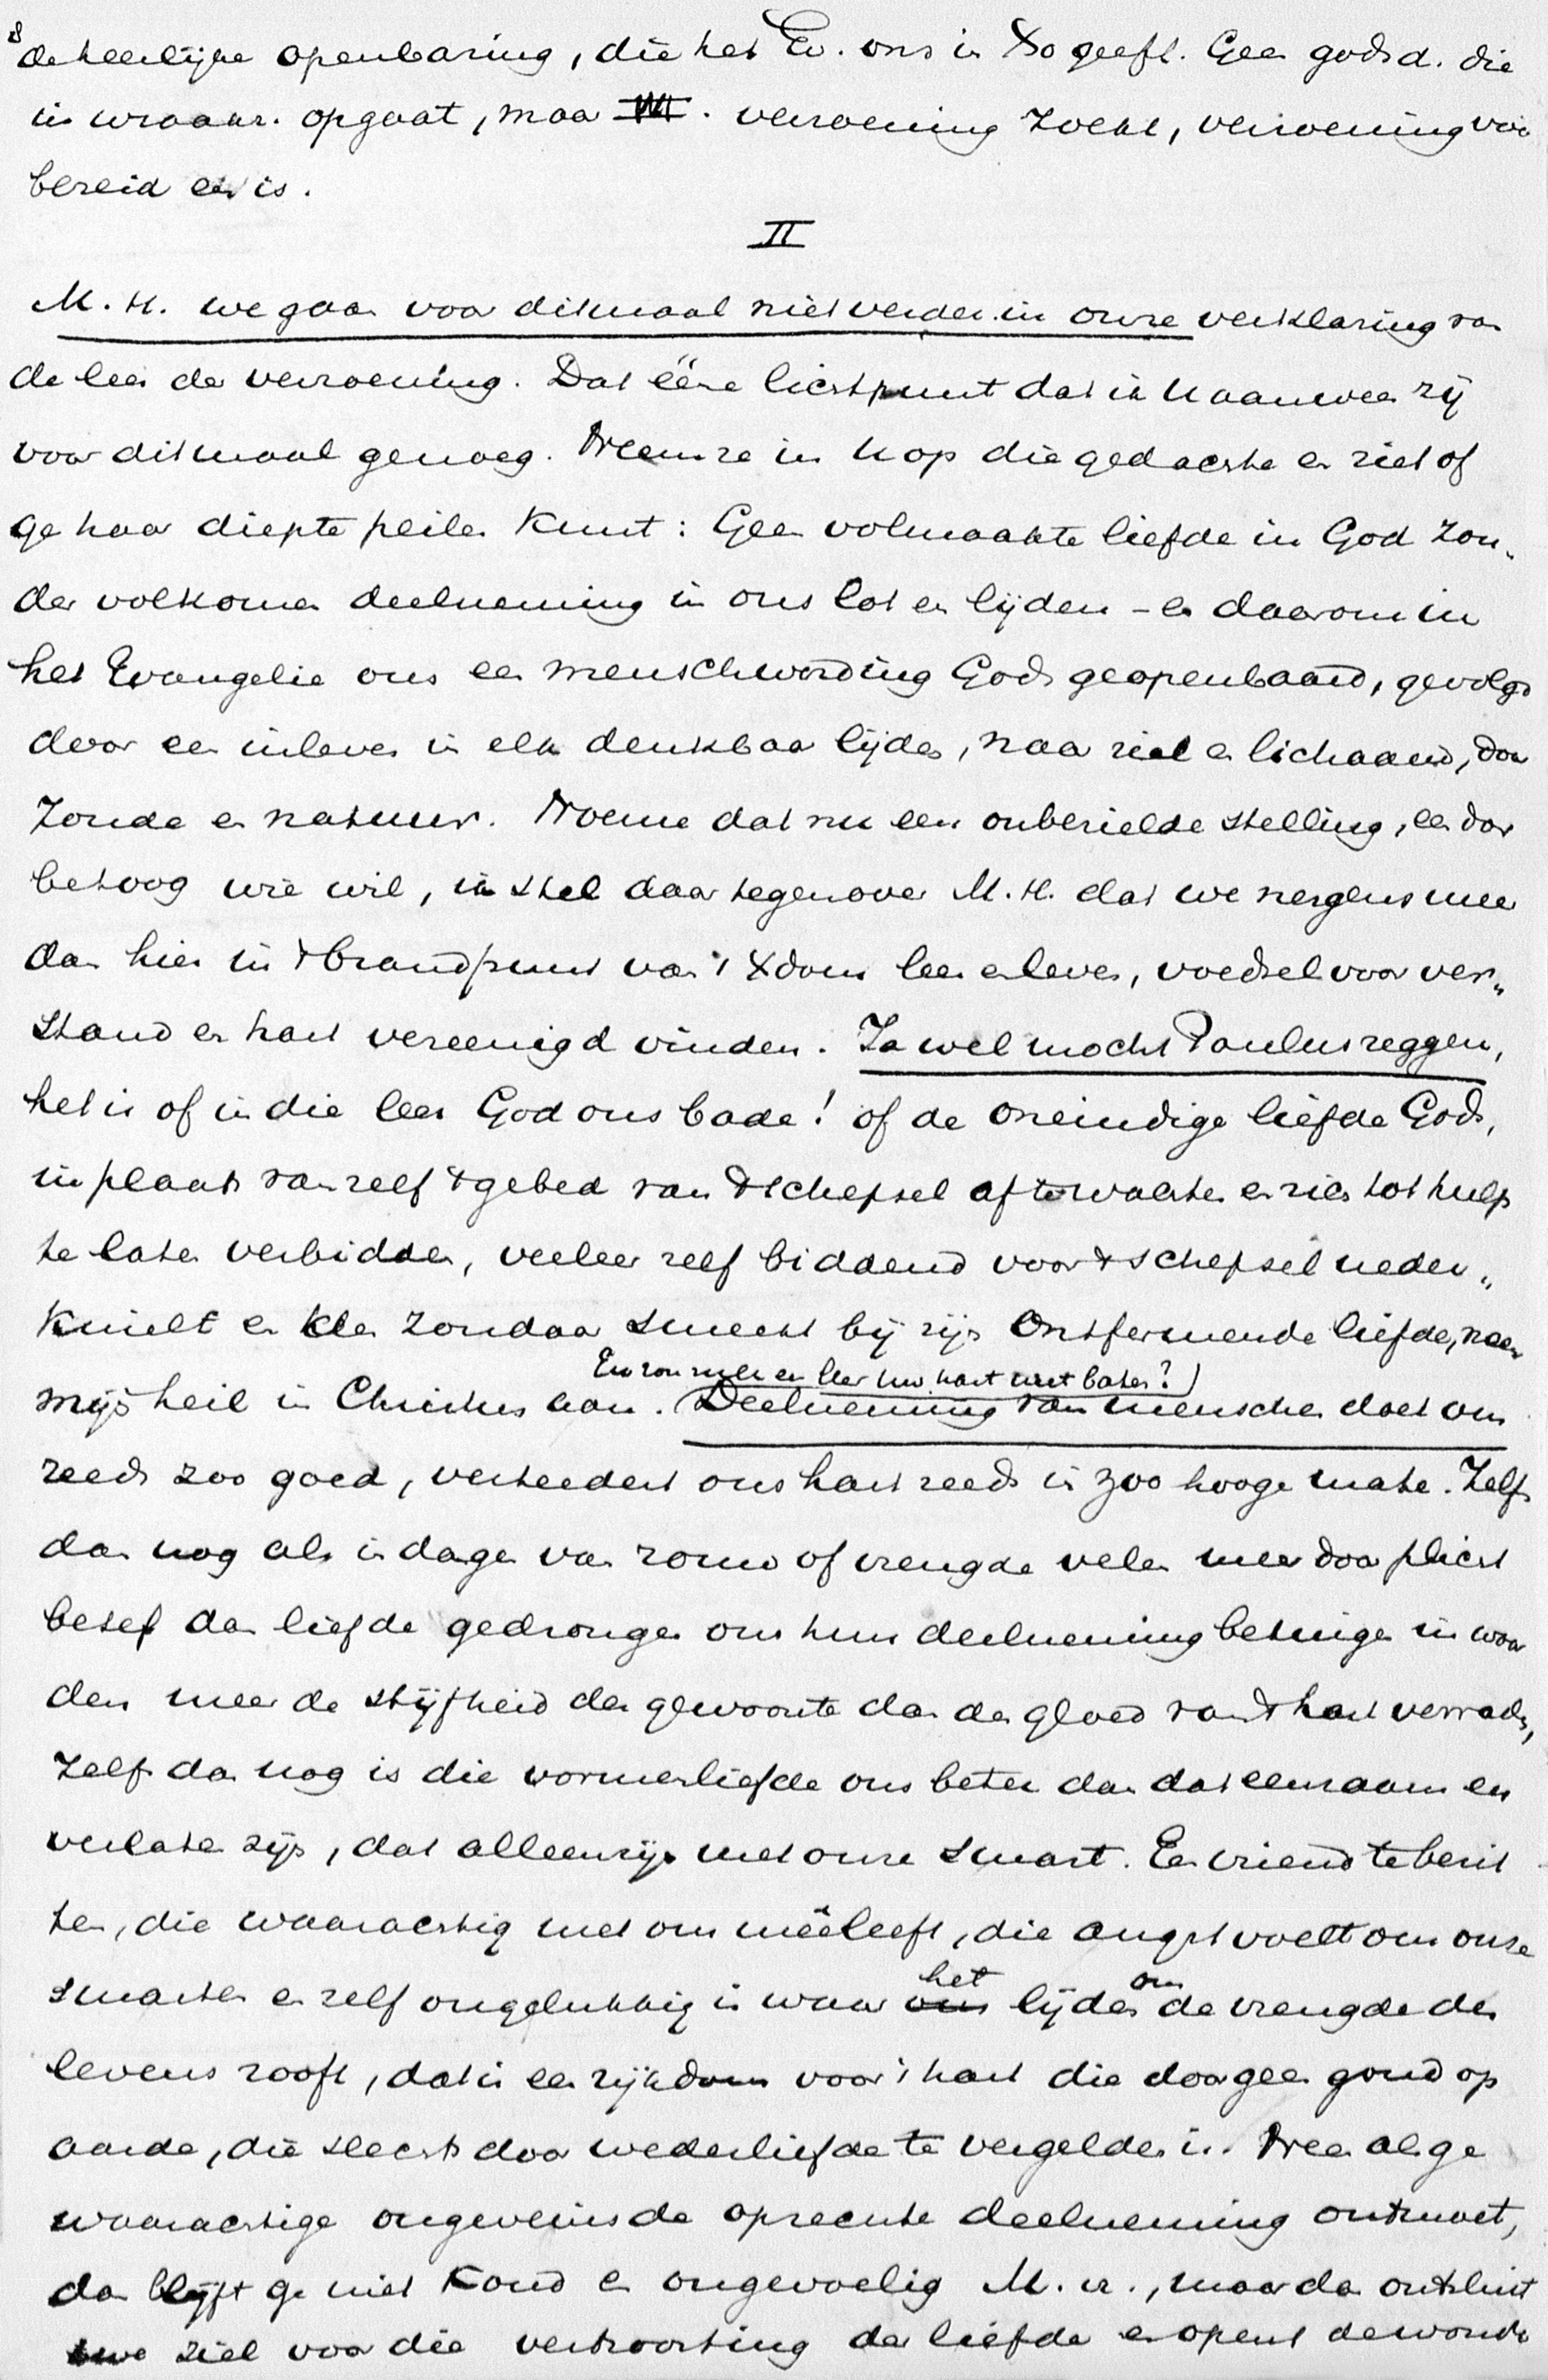 is de heerlijke openbaring, die het Ev. ons in Xo geeft. Geen godsd. die
in wraakn. opgaat, maar verzoening zoekt, verzoening voor
bereid en is.
II
M. H. we gaan voor ditmaal niet verder in onze verklaring van
de leer der verzoening. Dat ééne lichtpunt dat ik U aanwees zij
voor ditmaal genoeg. Neem ze in U op die gedachte en ziet of
ge haar diepte peilen kunt: Geen volmaakte liefde in God zon„
der volkomen deelneming in ons lot en lijden – en daarom in
het Evangelie ons een menschwording Gods geopenbaard, gevolgd
door een inleven in elk denkbaar lijden, naar ziel en lichaam, door
zonde en natuur. Noeme dat nu een onbezielde stelling, een dor
betoog wie wil, ik stel daar tegenover M. H. dat we nergens meer
dan hier in 't brandpunt van 't Xdom leer en leven, voedsel voor ver„
stand en hart vereenigd vinden. Ja wel mocht Paulus zeggen,
het is of in die leer God ons bade! of de oneindige liefde Gods,
in plaats van zelf 't gebed van 't schepsel af te wachten en zich tot hulp
te laten verbidden, veeleer zelf biddend voor 't schepsel neder„
knielt en elken zondaar smeekt bij zijn ontfermende liefde, neem
mijn heil in Christus aan. Deelneming van menschen doet ons
En zou zulk een leer uw hart niet baten?)
reeds zoo goed, verteedert ons hart reeds in zoo hooge mate. Zelfs
dan nog als in dagen van rouw of vreugde velen meer door plicht
besef dan liefde gedrongen ons hun deelneming betuigen in woor
den meer de stijfheid der gewoonte dan den gloed van 't hart verraadt,
zelfs dan nog is die vormenliefde ons beter dan dat eenzaam en
verlaten zijn, dat alleenzijn met onze smart. Een vriend te bezit
ten, die waarachtig met ons méeleeft, die angst voelt om onze
smarten en zelf ongelukkig is waar het lijden ons de vreugde des
levens rooft, dat is een rijkdom voor 't hart die door geen goud op
aarde, die slechts door wederliefde te vergelden is. Neen als ge
waarachtige ongeveinsde oprechte deelneming ontmoet,
dan blijft ge niet koud en ongevoelig M. H., maar dan ontsluit
uwe ziel voor die vertroosting der liefde en opent de wonde